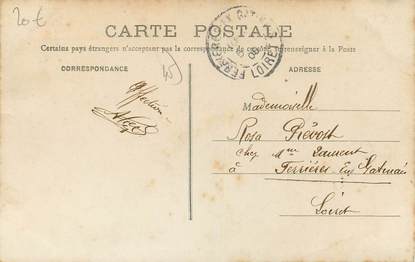 20€
CARTE POSTALE
Certains pays étrangers n'acceptant pas la correspondance de ce côté, se renseigner à la Poste
CORRESPONDANCE
ADRESSE
FERRIERES
LOIRET
Affection
Mademoiselle
Rosa Prévost
chez Mme Laurent
à Ferrières En Gatinais
Loiret